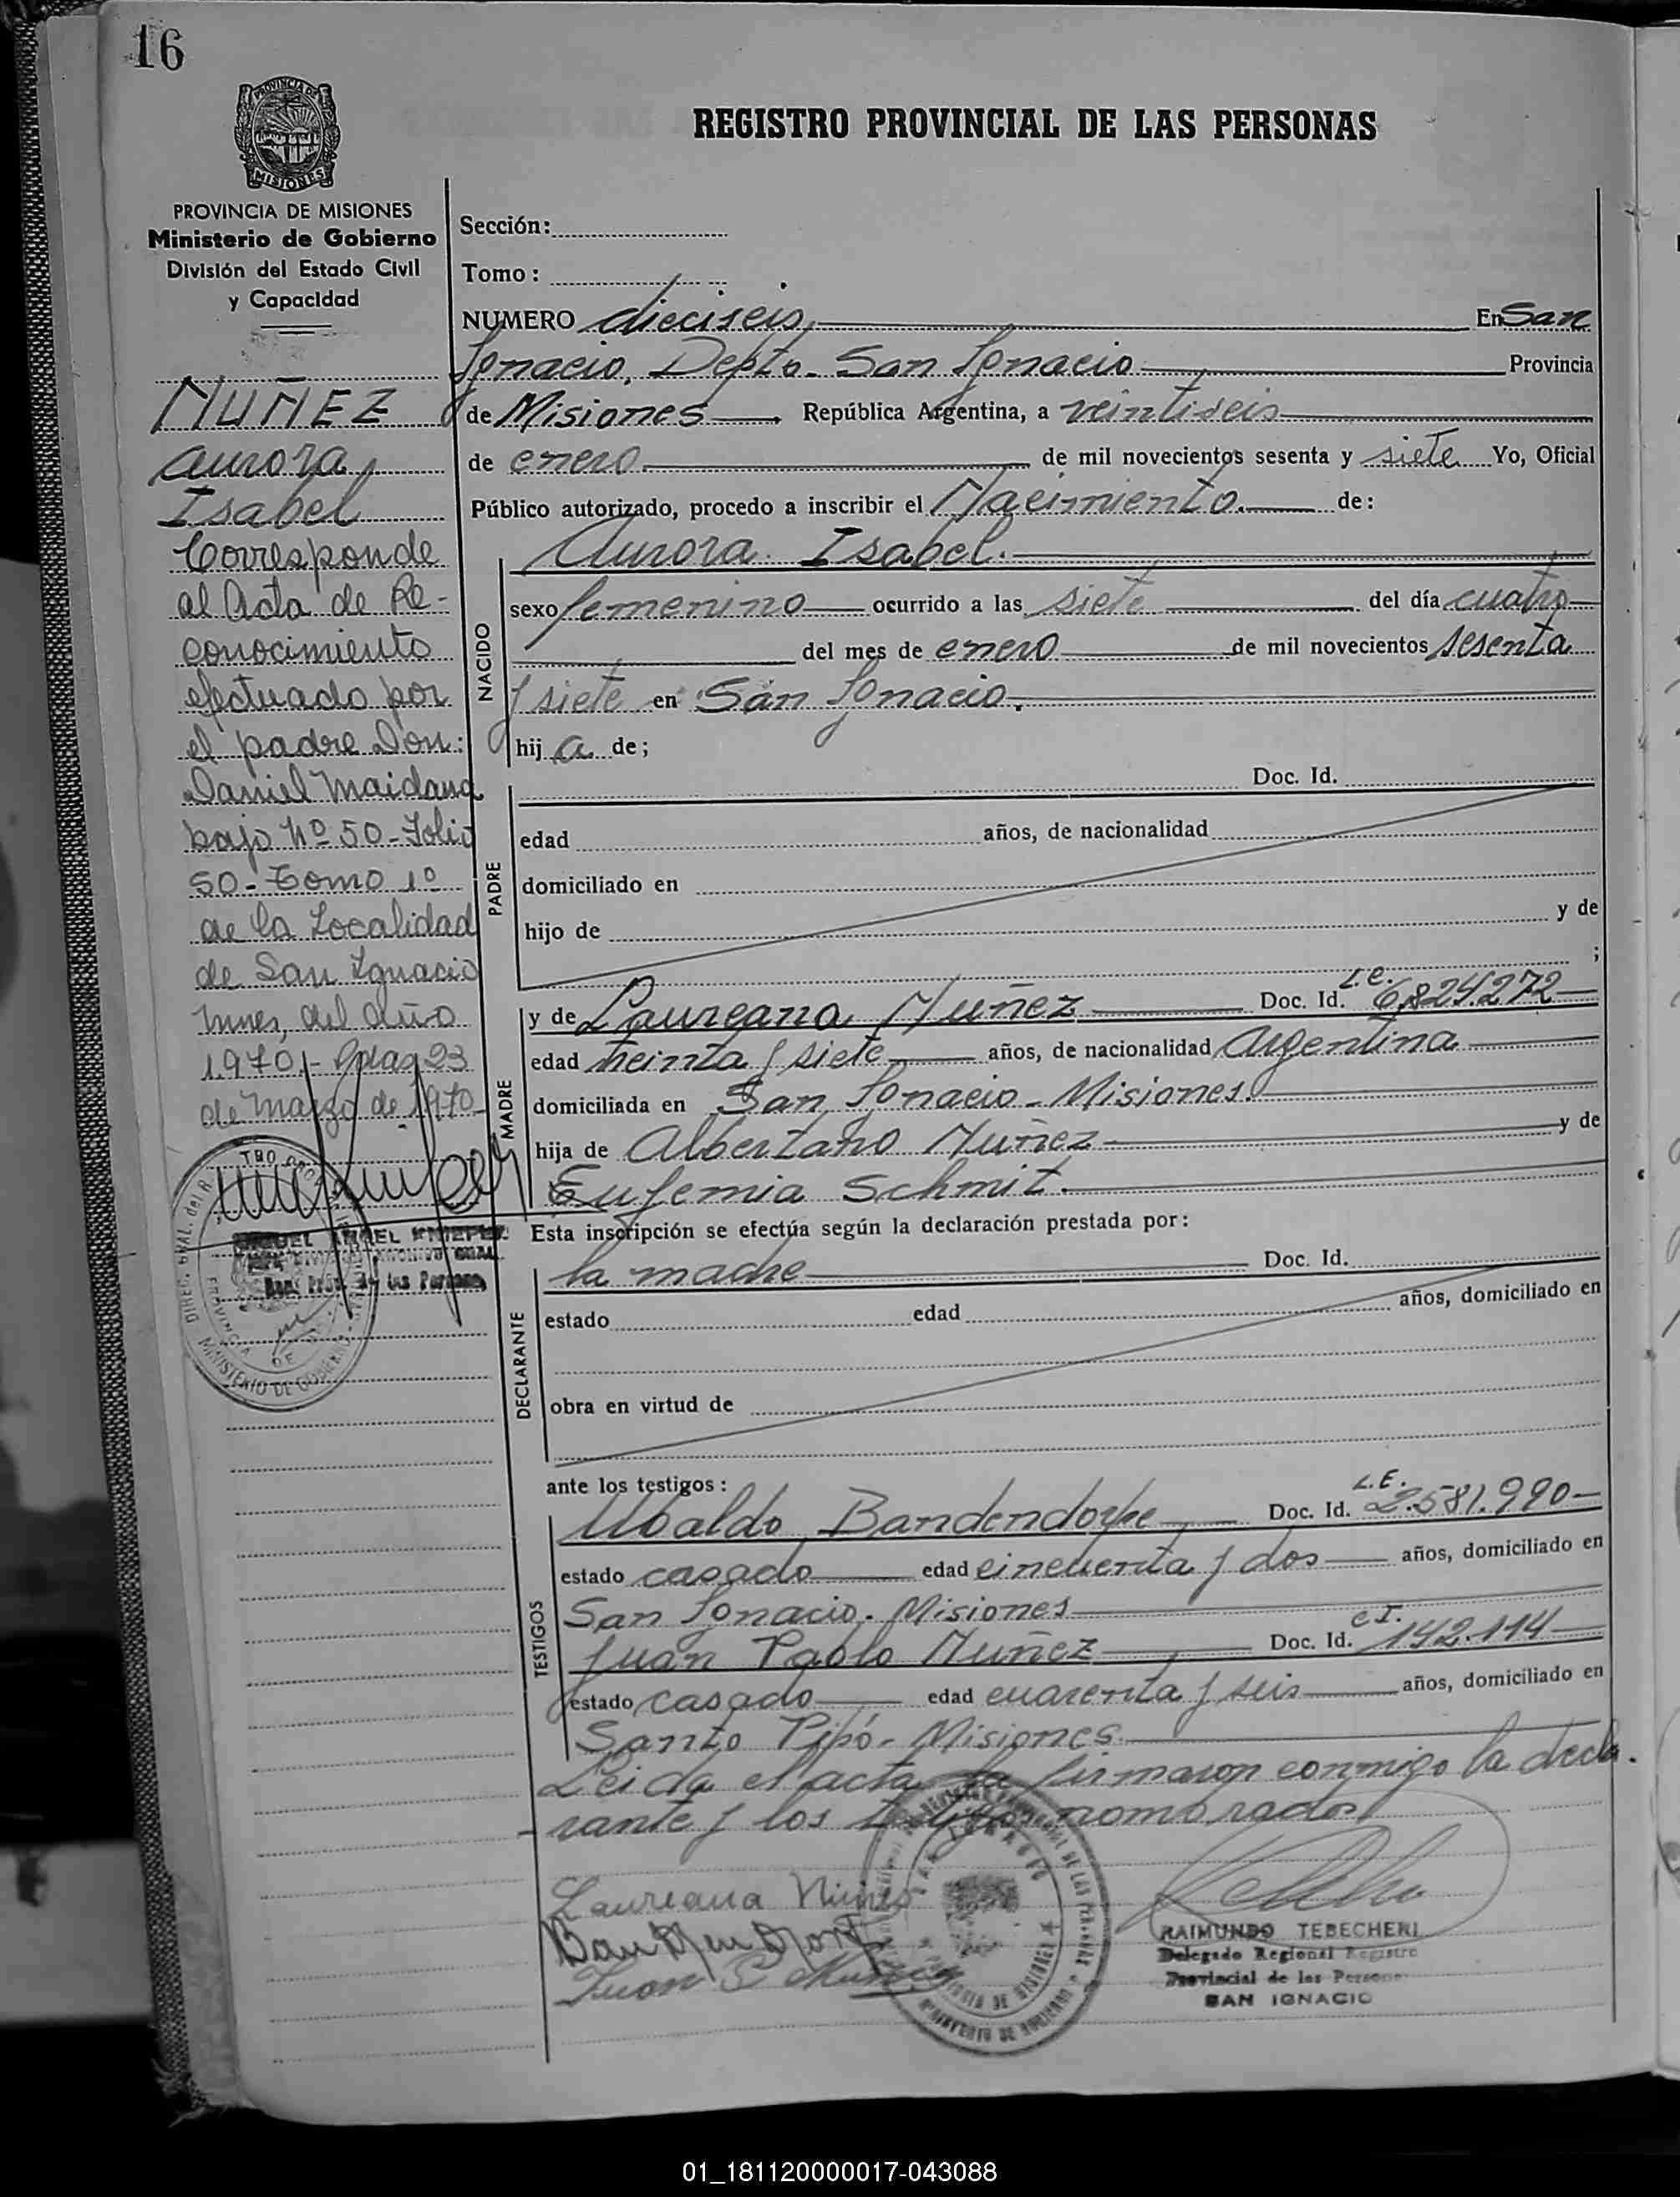 16
PROVINCIA DE
MISIONES
REGISTRO PROVINCIAL DE LAS PERSONAS
PROVINCIA DE MISIONES
Ministerio de Gobierno
División del Estado Civil
y Capacidad
NUÑEZ
Aurora
Isabel
Corresponde
al Acta de Re-
conocimiento
efectuado por
el padre Don:
Daniel Maidana
bajo Nº 50 - Folio
50 - Tomo 1º
de la Localidad
de San Ignacio
Mnes, del año
1.970 - Pdas 23
de Marzo de 1970
Sección:
Tomo:
NUMERO dieciseis, En San
Ignacio, Depto. San Ignacio Provincia
de Misiones República Argentina, a veintiseis
de enero de mil novecientos sesenta y siete Yo, Oficial
Público autorizado, procedo a inscribir el Nacimiento. de:
NACIDO
Aurora Isabel.
sexo femenino ocurrido a las siete del día cuatro
del mes de enero de mil novecientos sesenta
y siete en San Ignacio.
hij a de;
PADRE
Doc. Id.
edad años, de nacionalidad
domiciliado en
hijo de y de
;
MADRE
y de Laureana Nuñez Doc. Id. L.E. 6.824.272
edad treinta y siete años, de nacionalidad Argentina
domiciliada en San Ignacio - Misiones.
hija de Albertano Nuñez y de
Eufemia Schmit.
Esta inscripción se efectúa según la declaración prestada por:
DECLARANTE
la madre Doc. Id.
estado edad años, domiciliado en
obra en virtud de
ante los testigos:
TESTIGOS
Ubaldo Bandendorpe Doc. Id. L.E. 2.581.990
estado casado edad cincuenta y dos años, domiciliado en
San Ignacio. Misiones
Juan Pablo Nuñez Doc. Id. C.I. 142.114
estado casado edad cuarenta y seis años, domiciliado en
Santo Pipó - Misiones.
Leida el acta la firmaron conmigo la decla-
rante y los testigos nombrados
Laureana Nuñes
Juan P Nuñez
RAIMUNDO TEBECHERI
Delegado Regional Registro
Provincial de las Personas
SAN IGNACIO
01_181120000017-043088